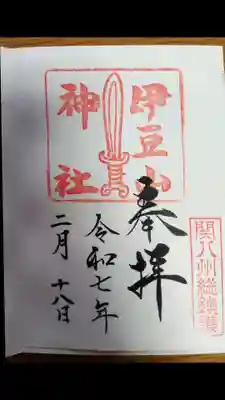 関八州総鎮護
奉拝
伊豆山
神社
令和七年
二月十八日